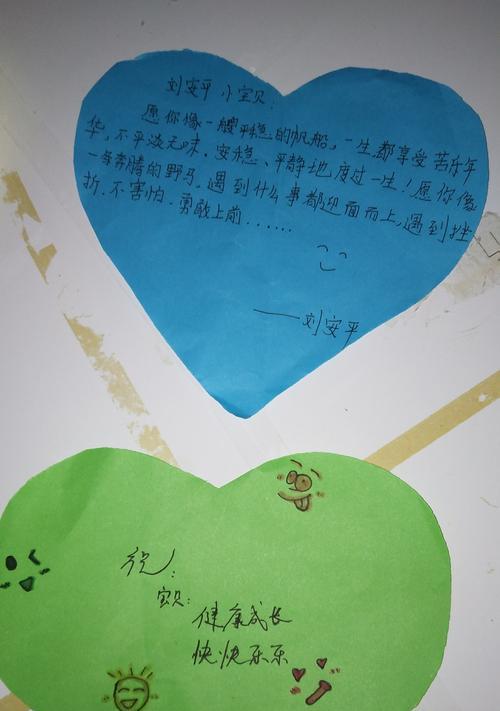 刘安平小宝贝:
愿你像一艘平稳的帆船,一生都享受苦乐年
华,不平淡无味.安稳、平静地度过一生!愿你像
一匹奔腾的野马,遇到什么事都迎面而上,遇到挫
折.不害怕.勇敢上前......
——刘安平
祝:
宝贝:
健康成长
快快乐乐